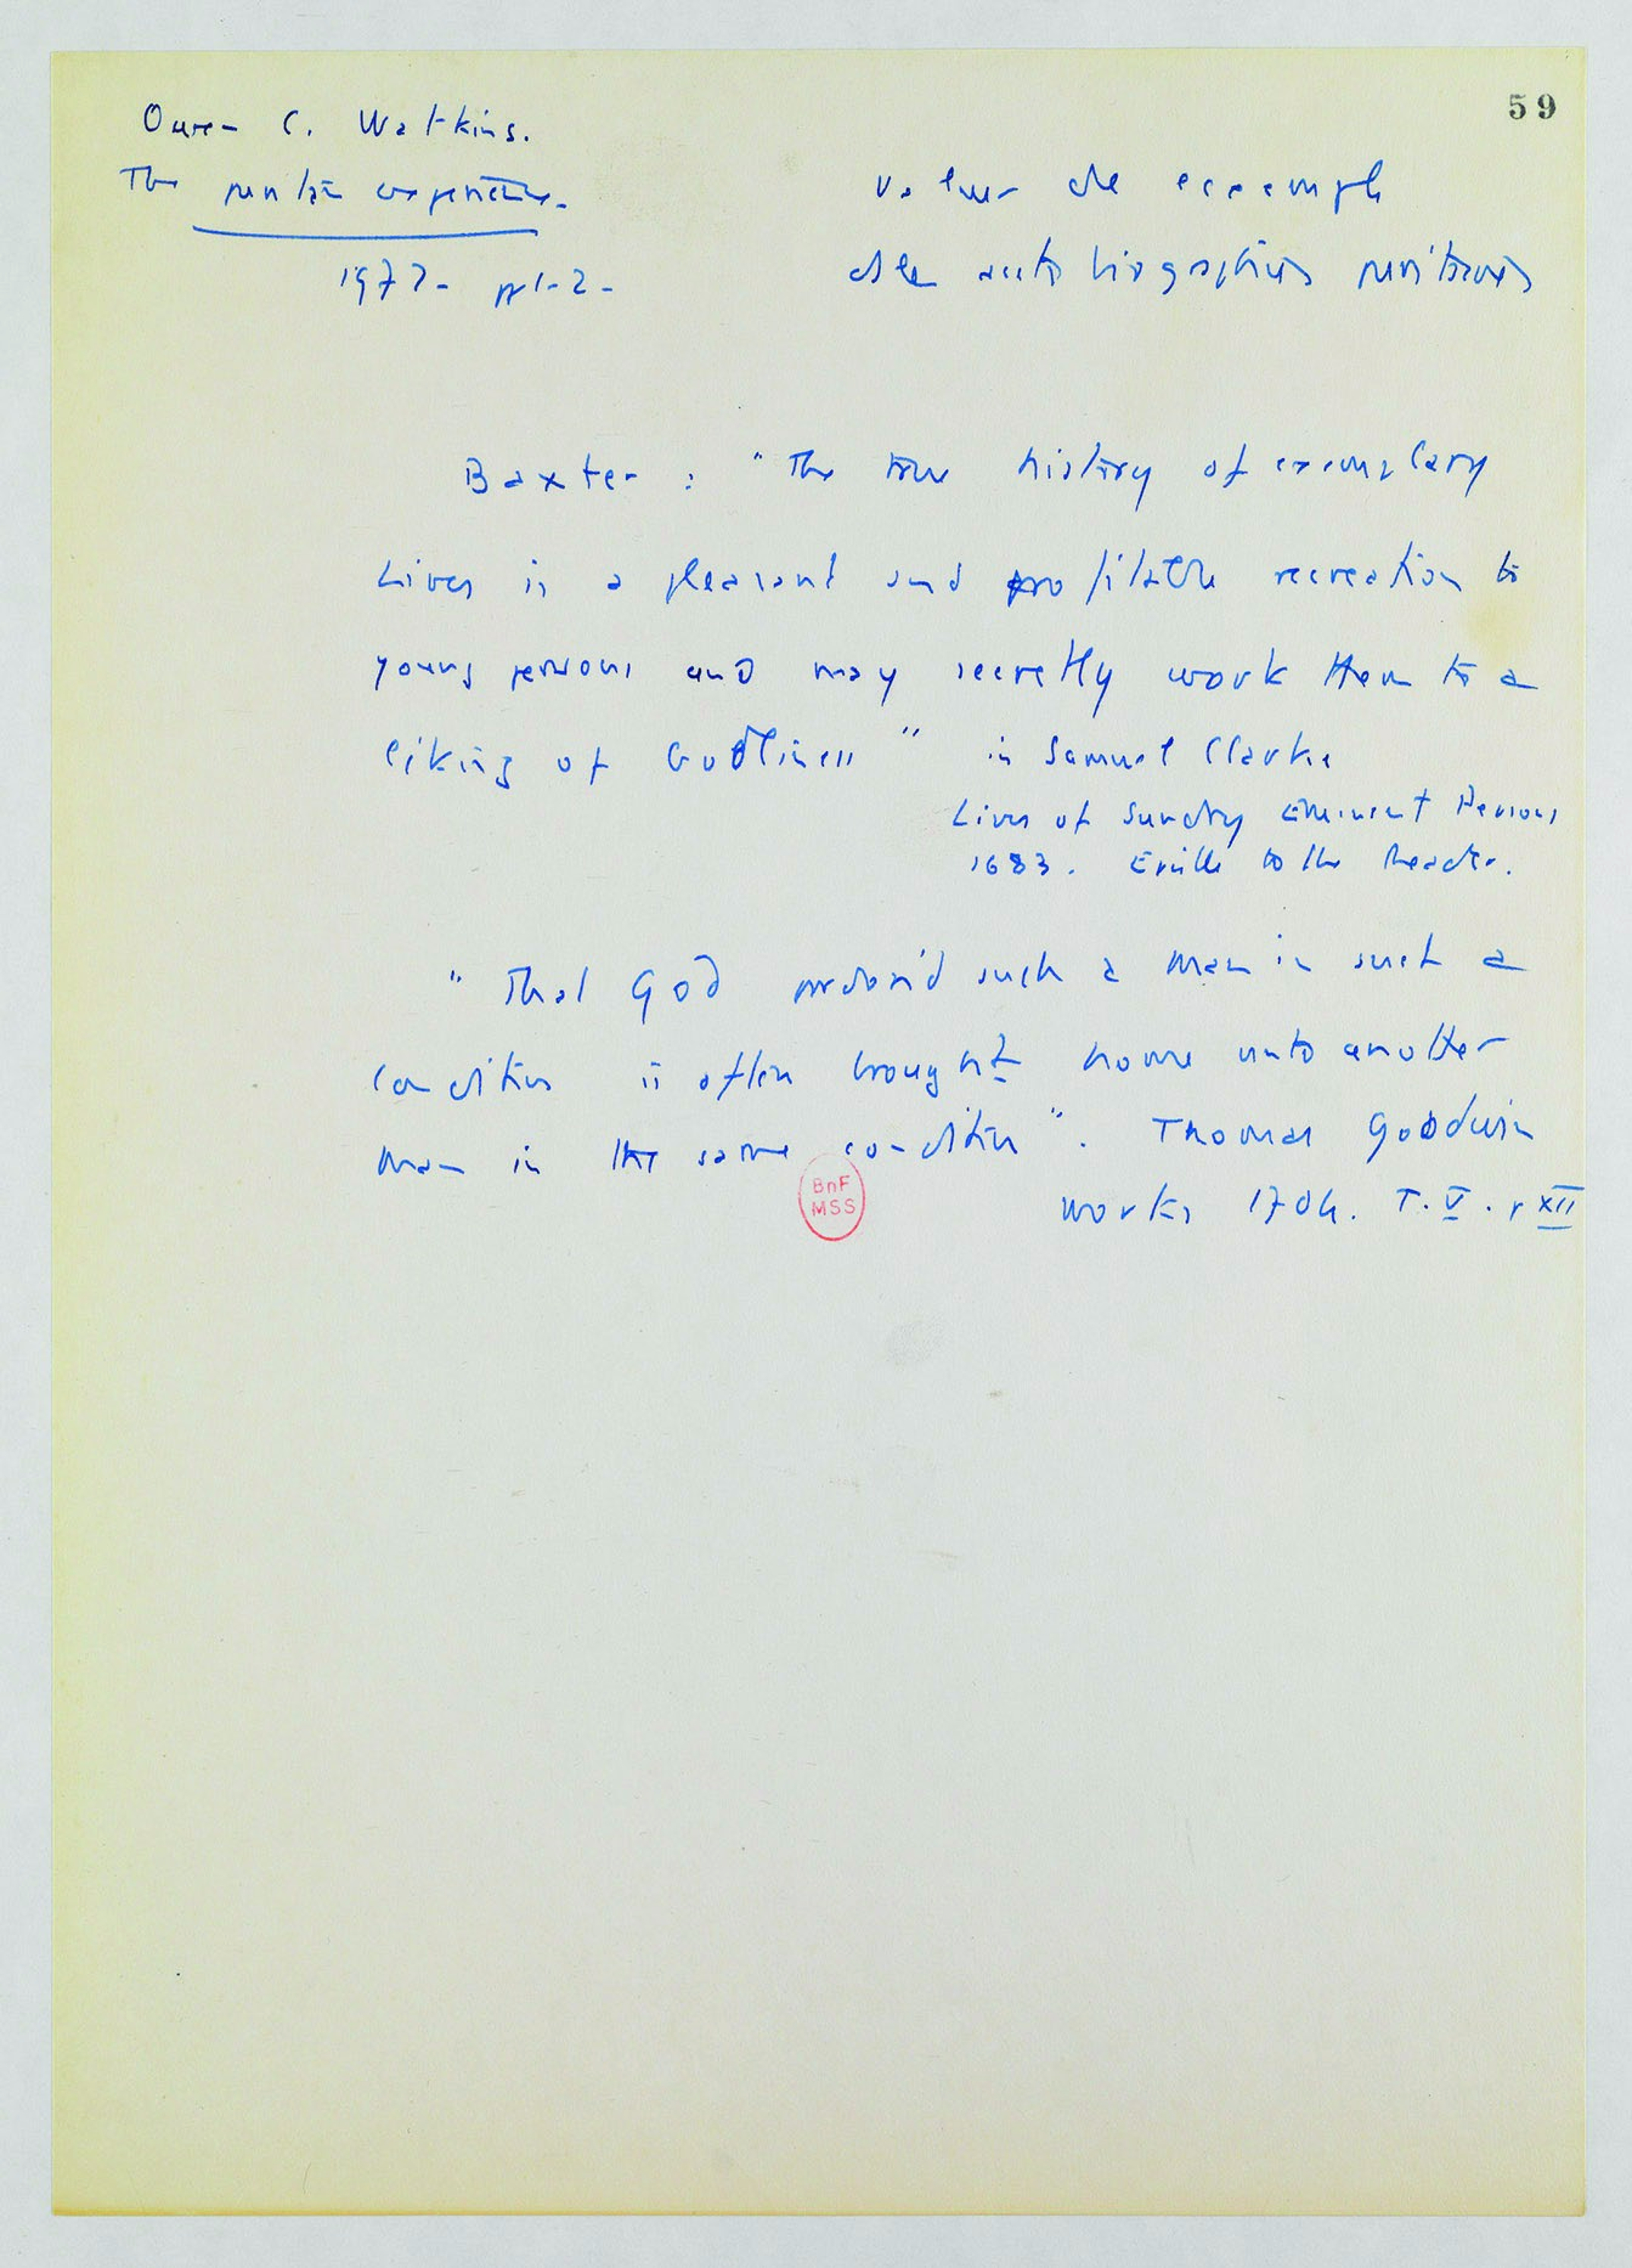 59
Owen C. Watkins.
The puritan experience.
1972. pp 1-2.
valeur de exemple
des autobiographies puritaines
Baxter : "The true history of exemplary
Lives is a pleasant and profitable recreation to
young persons and may secretly work them to a
liking of Godliness" in Samuel Clarke
Lives of Sundry Eminent Persons
1683. Epistle to the Reader.
"That God pardon'd such a man in such a
condition is often brought home unto another
man in the same condition". Thomas Goodwin
Works 1704. T. V. p XII
BnF
MSS